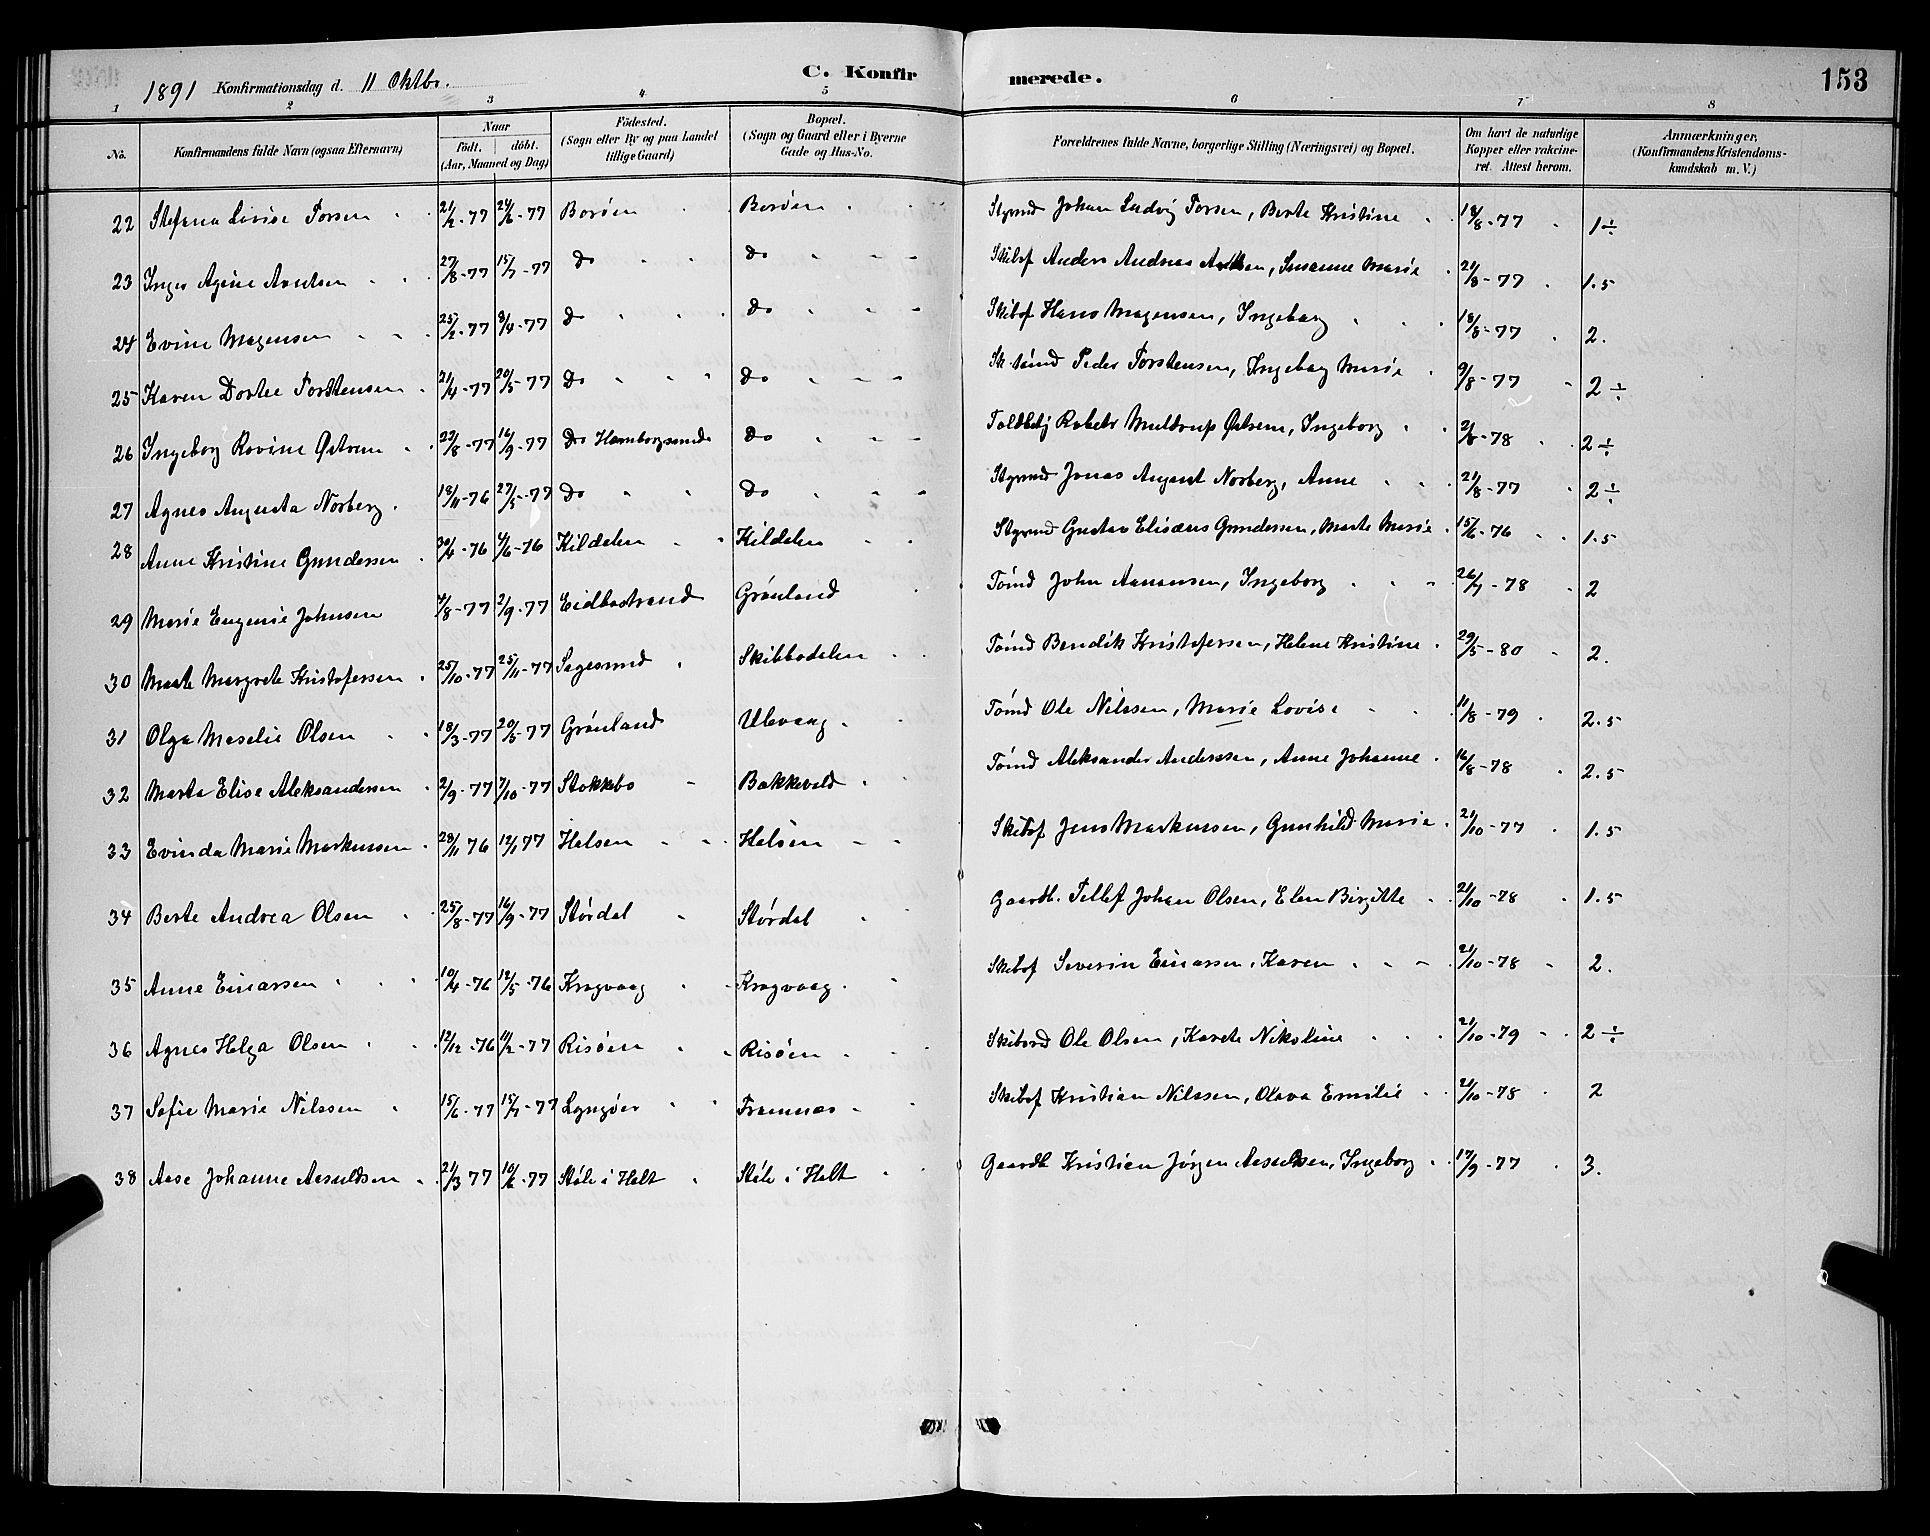 1891 Konfirmationsdag d. 11 Oktbr. C. Konfirmerede. 153
1 2 3 4 5 6 7 8
No. Konfirmandens fulde Navn (ogsaa Efternavn) Naar födt. döbt. (Aar, Maaned og Dag) Födested. (Sogn eller By og paa Landet tillige Gaard) Bopæl. (Sogn og Gaard eller i Byerne Gade og Hus-No. Forældrenes fulde Navne, borgerlige Stilling (Næringsvei) og Bopæl. Om havt de naturlige Kopper eller vakcineret. Attest herom. Anmærkninger, (Konfirmandens Kristendomskundskab m. V.)
22 Stefana Lovise Torsen 21/2-77 24/6-77 Borøen Borøen Styrmd Johan Ludvig Torsen, Berte Kristine 18/8-77 1÷
23 Inger Agine Arntsen 27/8-77 15/7-77 do do Skibsf Anders Andreas Arntsen, Susanne Marie 21/8-77 1.5
24 Evine Magensen 25/2-77 8/4-77 do do Skibsf Hans Magensen, Ingeborg 18/8-77 2.
25 Karen Dortee Torstensen 21/4-77 20/5-77 do do Sk.tømd Peder Torstensen, Ingeborg Marie 9/8-77 2÷
26 Ingeborg Rovine Østrem 23/8-77 16/9-77 do Hamborgsund do Toldbetj Robert Muldrup Østrem, Ingeborg 2/8-78 2÷
27 Agnes Augusta Norberg 18/11-76 27/5-77 do do Styrmd Jonas August Norberg, Anne 21/8-77 2÷
28 Anne Kristine Gundersen 30/4-76 4/6-76 Kildalen Kildalen Styrmd Gustav Elisæus Gundersen, Marte Marie 15/6-76 1.5
29 Marie Eugenie Johnsen 4/8-77 2/9-77 Eidbostrand Grønland Tømd John Aanonsen, Ingeborg 26/7-78 2
30 Marte Margrete Kristofersen 25/10-77 25/11-77 Sagesund Skibbodalen Tømd Bendik Kristofersen, Helene Kristine 29/5-80 2.
31 Olga Maselie Olsen 18/3-77 20/5-77 Grønland Ulevaag Tømd Ole Nilssen, Marie Lovise 11/8-79 2.5
32 Marta Elise Aleksandersen 2/9-77 7/10-77 Stokkebo Bakkevold Tømd Aleksander Anderssen, Anne Johanne 16/8-78 2.5
33 Evinda Marie Markussen 28/11 76 12/1 77 Halsen Halsen Skibsf Jens Markussen, Gunhild Marie 21/10-77 1.5
34 Berte Andrea Olsen 25/8-77 16/9-77 Størdal Størdal Gaardb. Tellef Johan Olsen, Elen Birgitte 21/10-78 1.5
35 Anne Einarsen 10/4-76 12/5-76 Kragvaag Kragvaag Skibsf Severin Einarsen, Karen 21/10-78 2.
36 Agnes Helga Olsen 12/12-76 11/2-77 Risøen Risøen Skibsrd Ole Olsen, Karete Nikoline 21/10-79 2÷
37 Sofie Marie Nilssen 15/6-77 15/7-77 Lyngøer Framnæs Skibsf Kristian Nilssen, Olava Emilie 21/10-78 2
38 Aase Johanne Aasuldsen 21/3 77 10/6-77 Støle i Holt Støle i Holt Gaardb Kristian Jørgen Aasuldsen, Ingeborg 17/9-77 3.